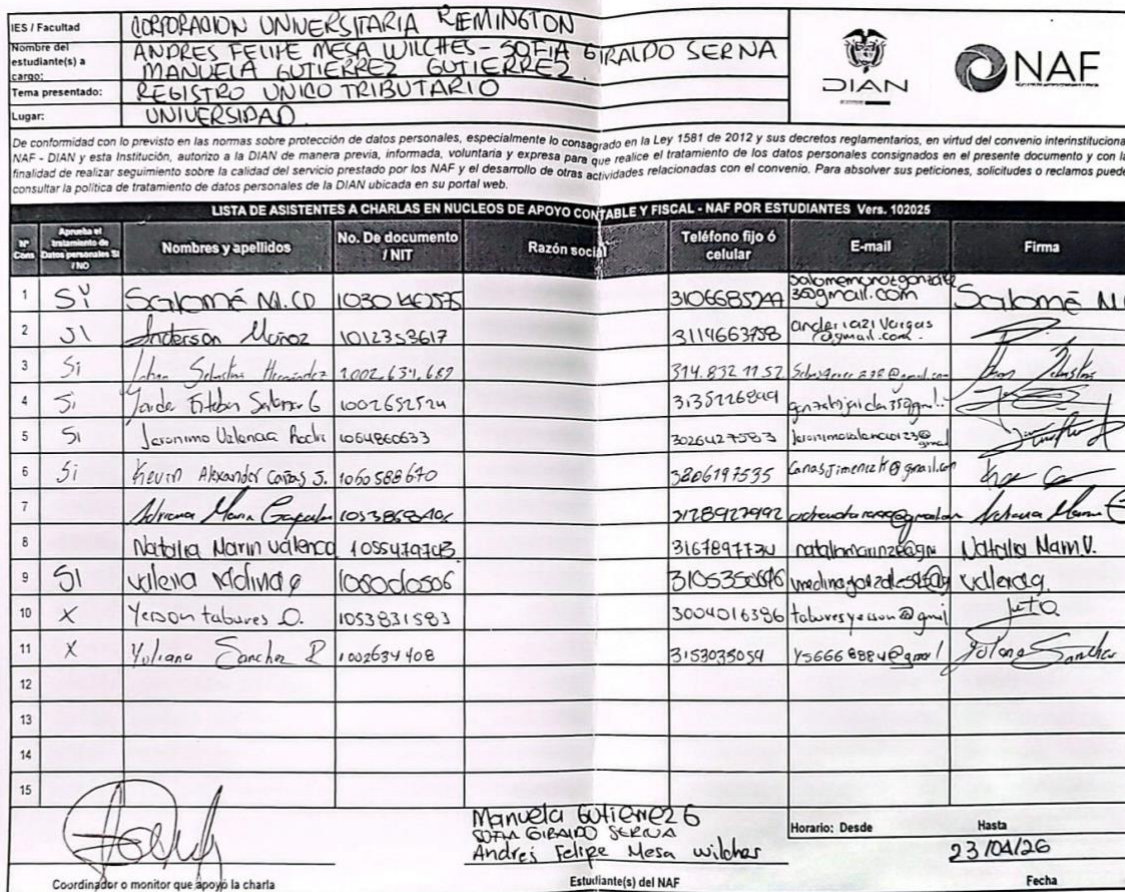 IES / Facultad CORPORACION UNIVERSITARIA REMINGTON
Nombre del estudiante(s) a cargo: ANDRES FELIPE MESA WILCHES - SOFIA GIRALDO SERNA
MANUELA GUTIERREZ GUTIERREZ.
Tema presentado: REGISTRO UNICO TRIBUTARIO
Lugar: UNIVERSIDAD
DIAN
NAF
De conformidad con lo previsto en las normas sobre protección de datos personales, especialmente lo consagrado en la Ley 1581 de 2012 y sus decretos reglamentarios, en virtud del convenio interinstituciona
NAF - DIAN y esta Institución, autorizo a la DIAN de manera previa, informada, voluntaria y expresa para que realice el tratamiento de los datos personales consignados en el presente documento y con la
finalidad de realizar seguimiento sobre la calidad del servicio prestado por los NAF y el desarrollo de otras actividades relacionadas con el convenio. Para absolver sus peticiones, solicitudes o reclamos puede
consultar la política de tratamiento de datos personales de la DIAN ubicada en su portal web.
LISTA DE ASISTENTES A CHARLAS EN NUCLEOS DE APOYO CONTABLE Y FISCAL - NAF POR ESTUDIANTES Vers. 102025
Nº Cons Aprueba el tratamiento de Datos personales SI / NO Nombres y apellidos No. De documento / NIT Razón social Teléfono fijo ó celular E-mail Firma
1 Si Salomé M. 3106685244 Salomé M
2 SI Anderson Muñoz 1012353617 3114663758
3 Si Sebastian Hernández 314.832 1152
4 Si Esteban 1002652524 3135226849
5 SI Jeronimo Valencia 1054860633 3026427583
6 Si Kevin Alexander Cañas J. 1060588670 3206197535 canasjimenezk@gmail.com
7 Adriana Maria 3128927992 Adriana Maria
8 Natalia Marin Valencia 1055479703 3167897724 Natalia Marin V.
9 SI Valeria Molina 3105350696 Valeria
10 X Yerson tabares O. 1053831583 3004016386
11 X Yuliana Sanchez R 1002634408 3153035054 Sanchez
12
13
14
15
Manuela Gutierrez G
SOFIA GIRALDO SERNA
Andres Felipe Mesa Wilches
Horario: Desde Hasta
23/04/26
Coordinador o monitor que apoyó la charla Estudiante(s) del NAF Fecha